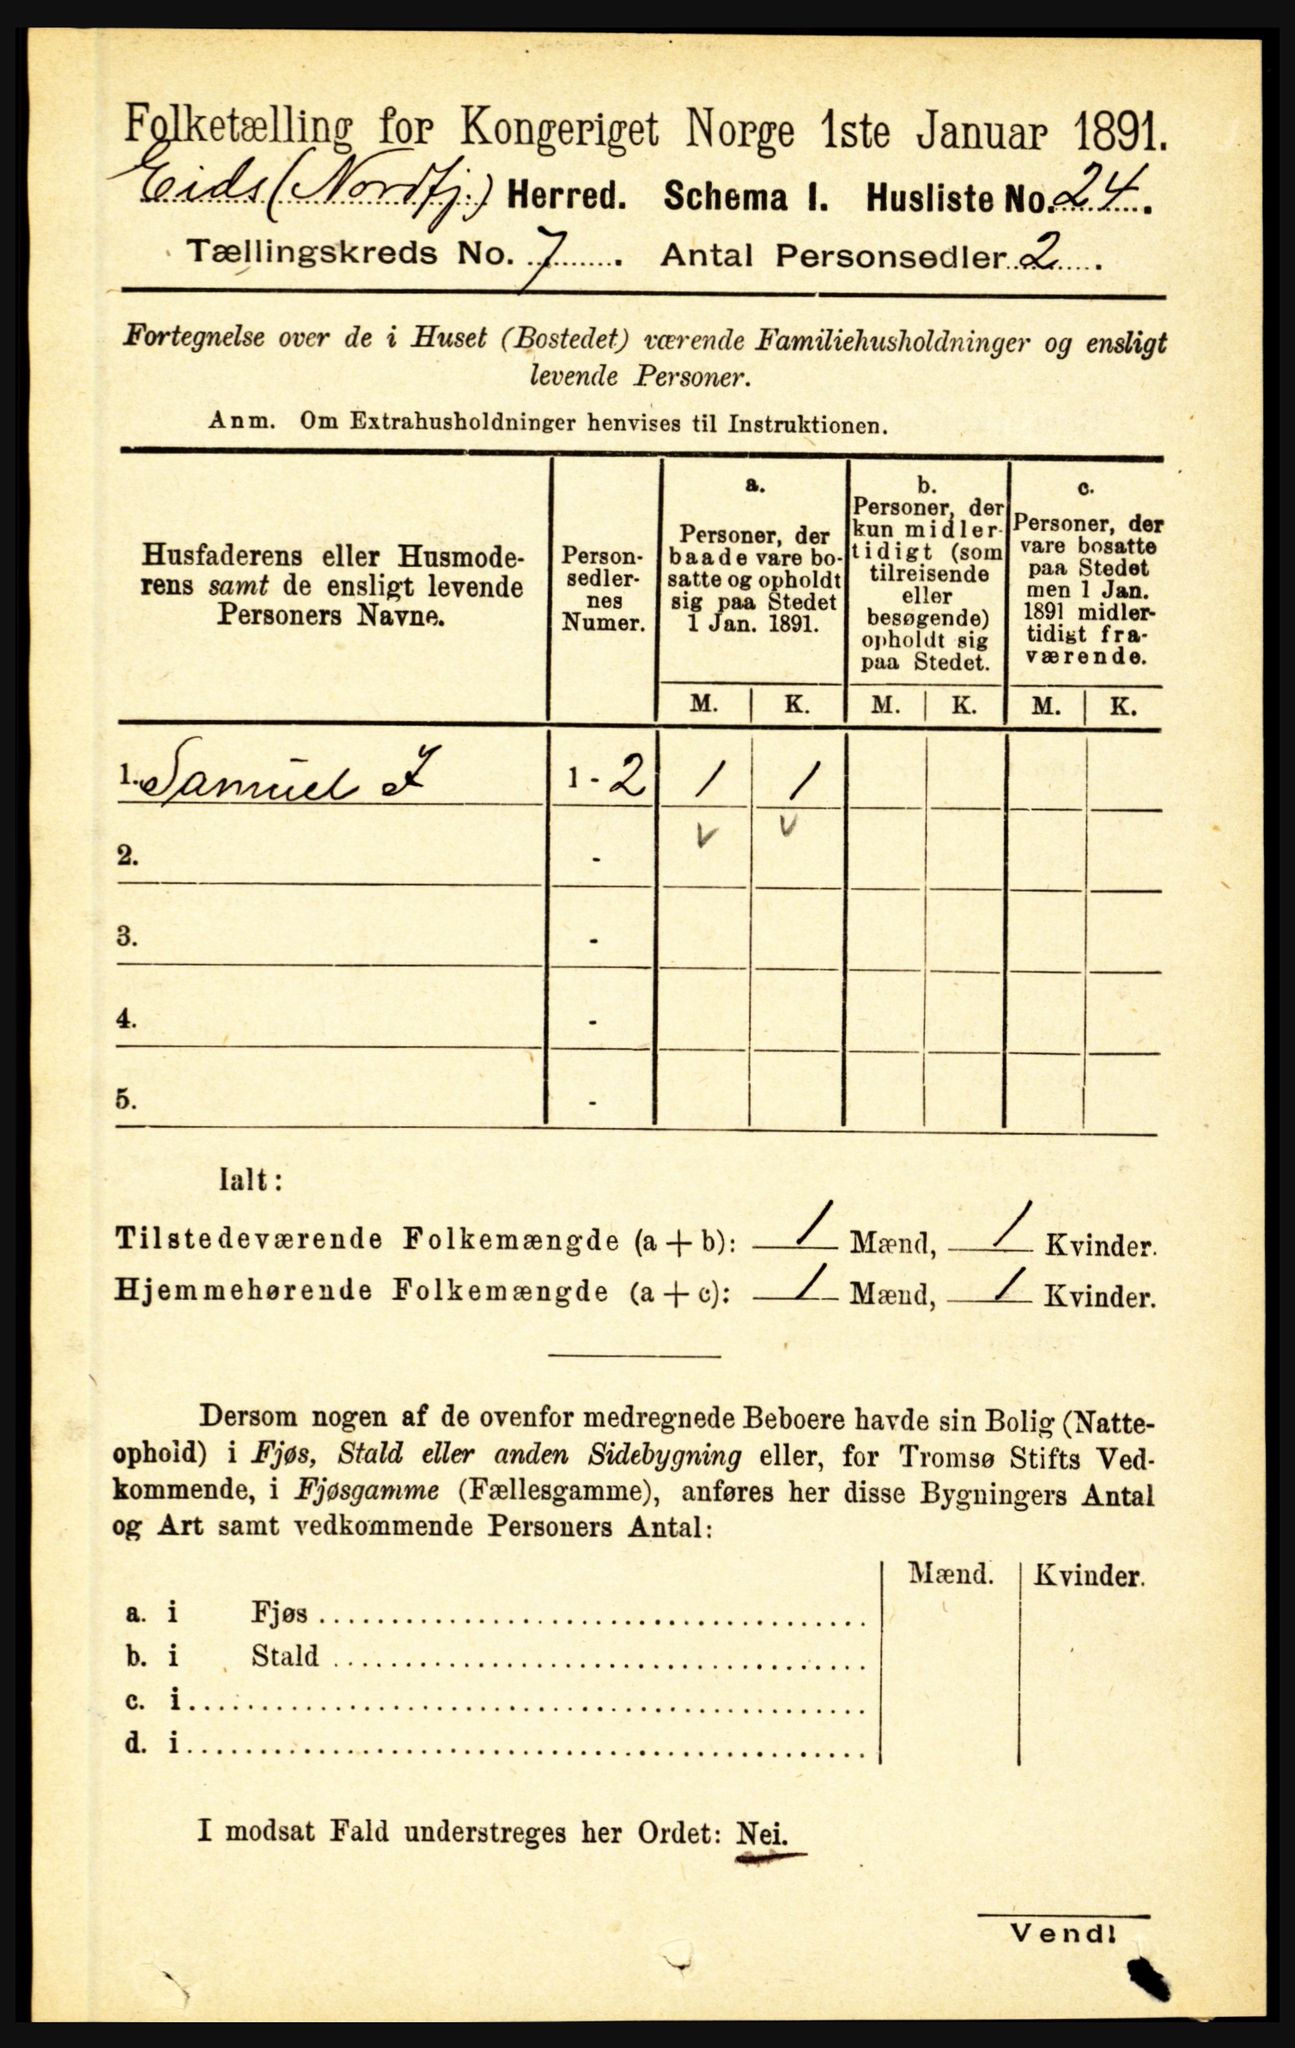 Folketælling for Kongeriget Norge 1ste Januar 1891.
Eids (Nordfj.) Herred. Schema I. Husliste No. 24.
Tællingskreds No. 7. Antal Personsedler 2.
Fortegnelse over de i Huset (Bostedet) værende Familiehusholdninger og ensligt
levende Personer.
Anm. Om Extrahusholdninger henvises til Instruktionen.
Husfaderens eller Husmode-
rens samt de ensligt levende
Personers Navne.
Person-
sedler-
nes
Numer.
a.
Personer, der
baade vare bo-
satte og opholdt
sig paa Stedet
1 Jan. 1891.
b.
Personer, der
kun midler-
tidigt (som
tilreisende
eller
besøgende)
opholdt sig
paa Stedet.
c.
Personer, der
vare bosatte
paa Stedet
men 1 Jan.
1891 midler-
tidigt fra-
værende.
M. K. M. K. M. K.
1. Samuel I 1 - 2 1 1
2. -
3. -
4. -
5. -
Ialt:
Tilstedeværende Folkemængde (a + b): 1 Mænd, 1 Kvinder.
Hjemmehørende Folkemængde (a + c): 1 Mænd, 1 Kvinder.
Dersom nogen af de ovenfor medregnede Beboere havde sin Bolig (Natte-
ophold) i Fjøs, Stald eller anden Sidebygning eller, for Tromsø Stifts Ved-
kommende, i Fjøsgamme (Fællesgamme), anføres her disse Bygningers Antal
og Art samt vedkommende Personers Antal:
Mænd. Kvinder.
a. i Fjøs
b. i Stald
c. i
d. i
I modsat Fald understreges her Ordet: Nei.
Vend!